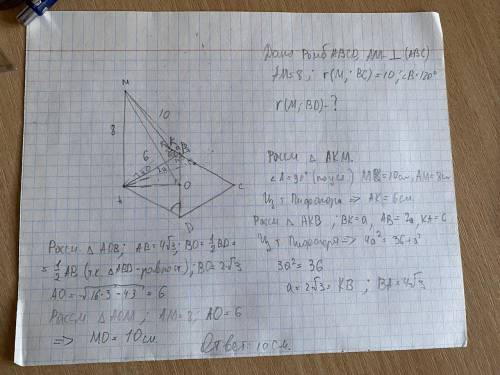 Дано Ромб ABCD, AM ⊥ (ABC)
AM=8; r(M; BC)=10; ∠B=120°
r(M; BD)-?
M
10
8
6
K
B
a
2a
A
O
C
D
Рассм △ AKM.
∠A=90° (по усл) MK=10см, AM=8см
Из т Пифагора => AK=6см
Рассм △ AKB, BK=a, AB=2a, KA=6
Из т Пифагора => 4a²=36+a²
3a²=36
a=2√3=KB ; BA=4√3
Рассм △ AOB; AB=4√3; BO=½BD=
=½AB (т.к. △ABD-равност); BO=2√3
AO=√16·3-4·3=6
Рассм △ AOM; AM=8; AO=6
=> MO=10см
Ответ: 10см.